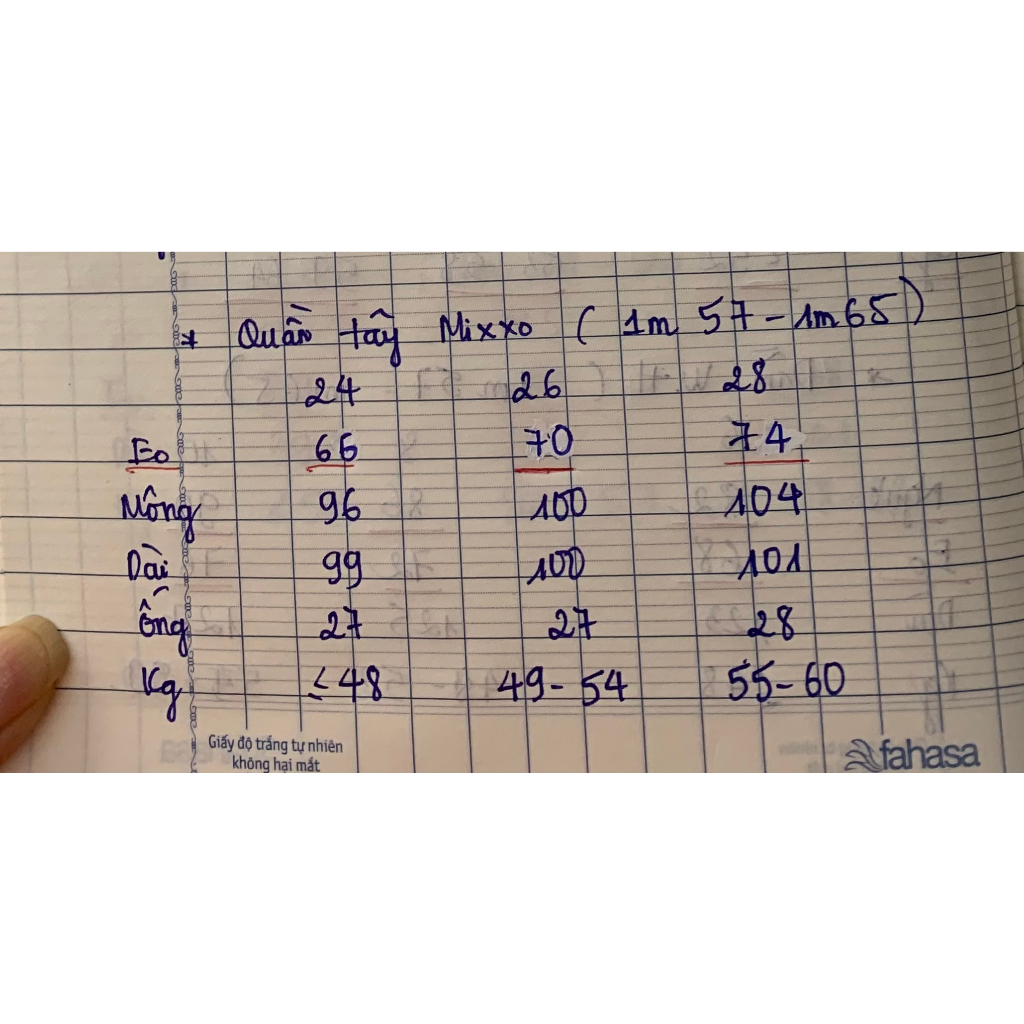 * Quần tây Mixxo ( 1m 57 - 1m 65 )
24 26 28
Eo 66 70 74
Mông 96 100 104
Dài 99 100 101
Ống 27 27 28
Kg ≤ 48 49 - 54 55 - 60
Giấy độ trắng tự nhiên
không hại mắt
fahasa